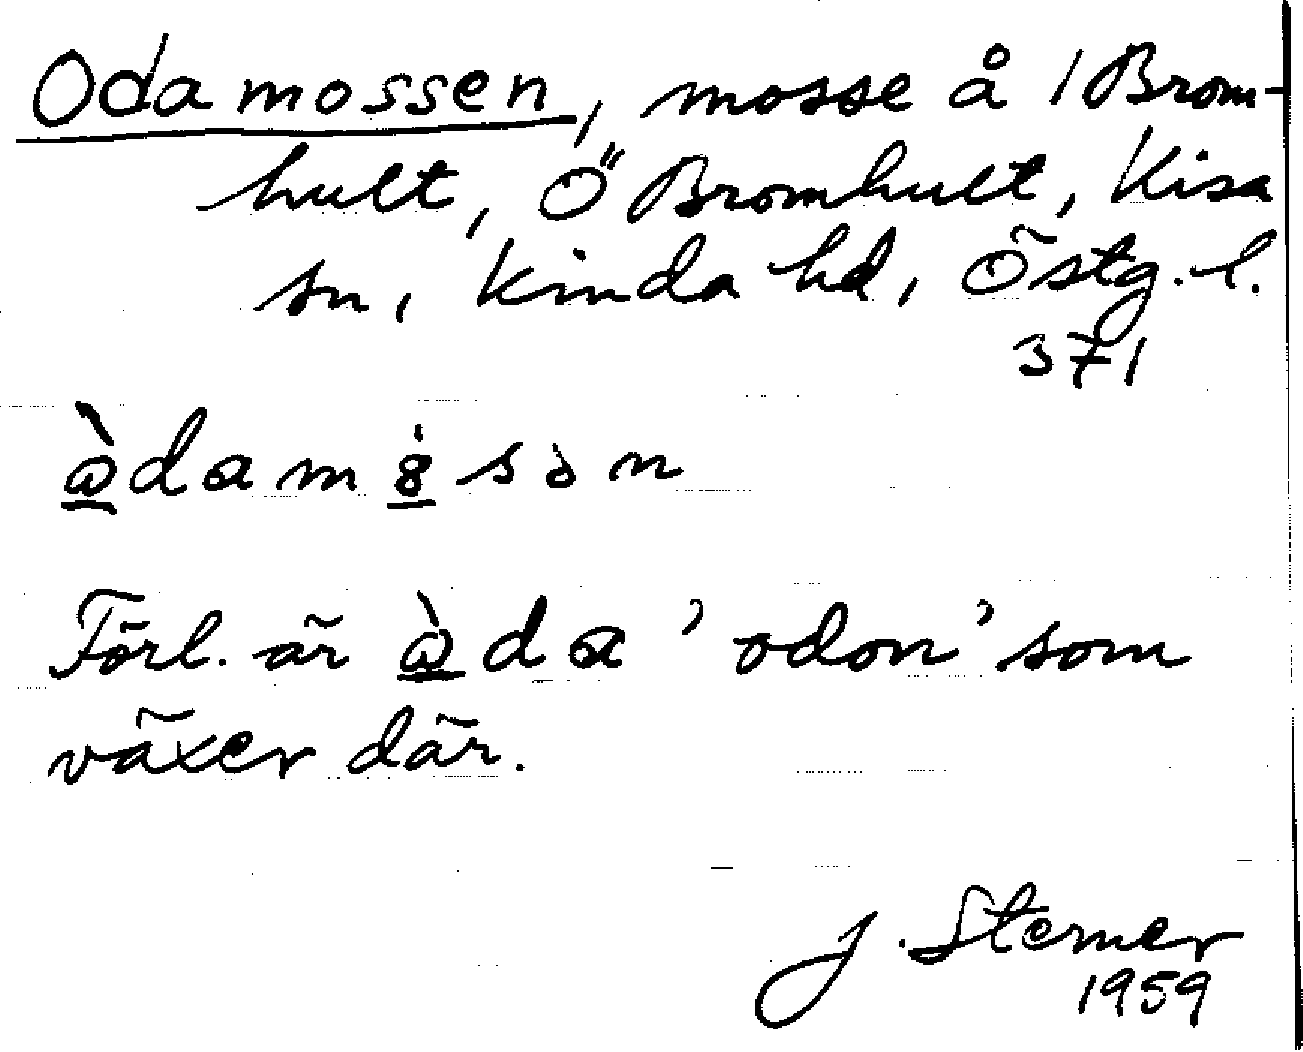 Odamossen, mosse å 1 Brom-
hult, Ö Bromhult, Kisa
sn, Kinda hd, Östg. l.
371
Förl. är 'odon' som
växer där.
J. Sterner
1959